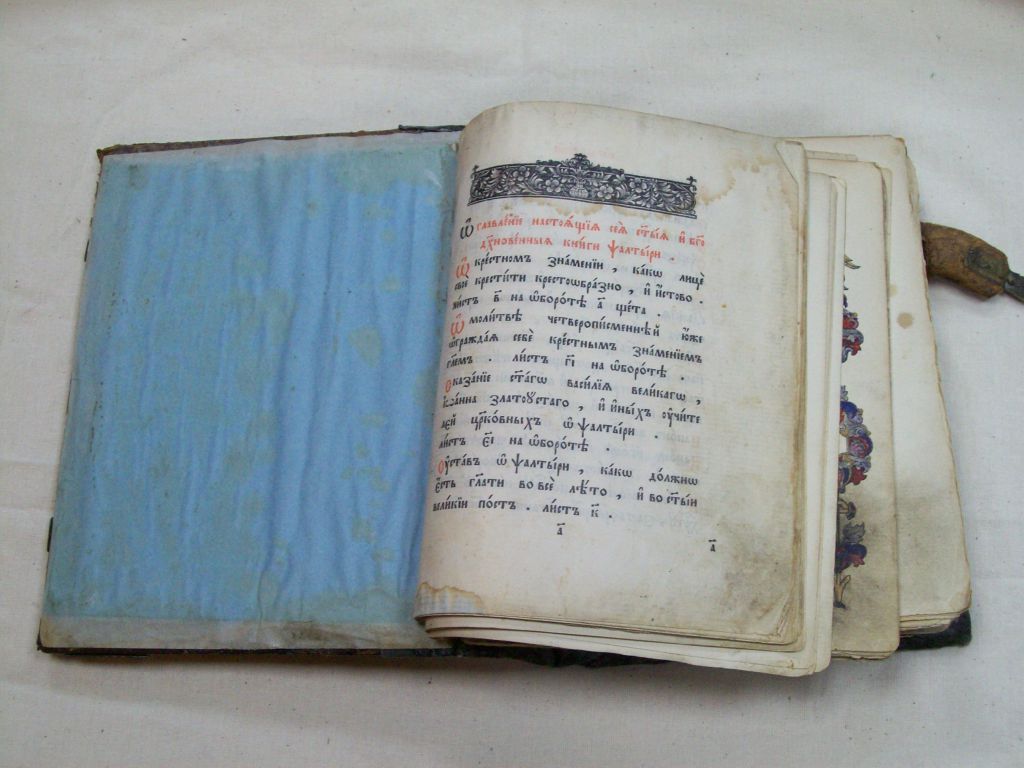 Ѡ҆главле́нїе настоѧ́щїѧ сеѧ̀ ст҃ы́ѧ и҆ бг҃о
дх҃нове́нныѧ кни́ги ѱалты́ри .
Ѡ҆ кре́стномъ зна́менїи , ка́кѡ лицѐ
своѐ крести́ти крестѡѡбра́знѡ , и҆ и҆́стово .
ли́стъ в҃ на ѡ҆боро́тѣ а҃ ще́та .
Ѡ҆ моли́твѣ четверопи́сменнѣй ю҆́же
ѡ҆гражда́ѧ себѐ кре́стнымъ зна́менїемъ
гл҃емъ . ли́стъ г҃і на ѡ҆боро́тѣ .
Сказа́нїе ст҃а́гѡ васи́лїѧ вели́кагѡ ,
і҆ѡа́нна златоꙋ́стаго , и҆ и҆ны́хъ ᲂу҆чи́те
лей цр҃ко́вныхъ ѡ҆ ѱалты́ри .
ли́стъ є҃і на ѡ҆боро́тѣ .
Оу҆ста́въ ѡ҆ ѱалты́ри , ка́кѡ до́лжнѡ
є҆́сть гл҃ати во всѐ лѣ́то , и҆ во ст҃ы́и
вели́кїи по́стъ . ли́стъ к҃ .
а҃ а҃